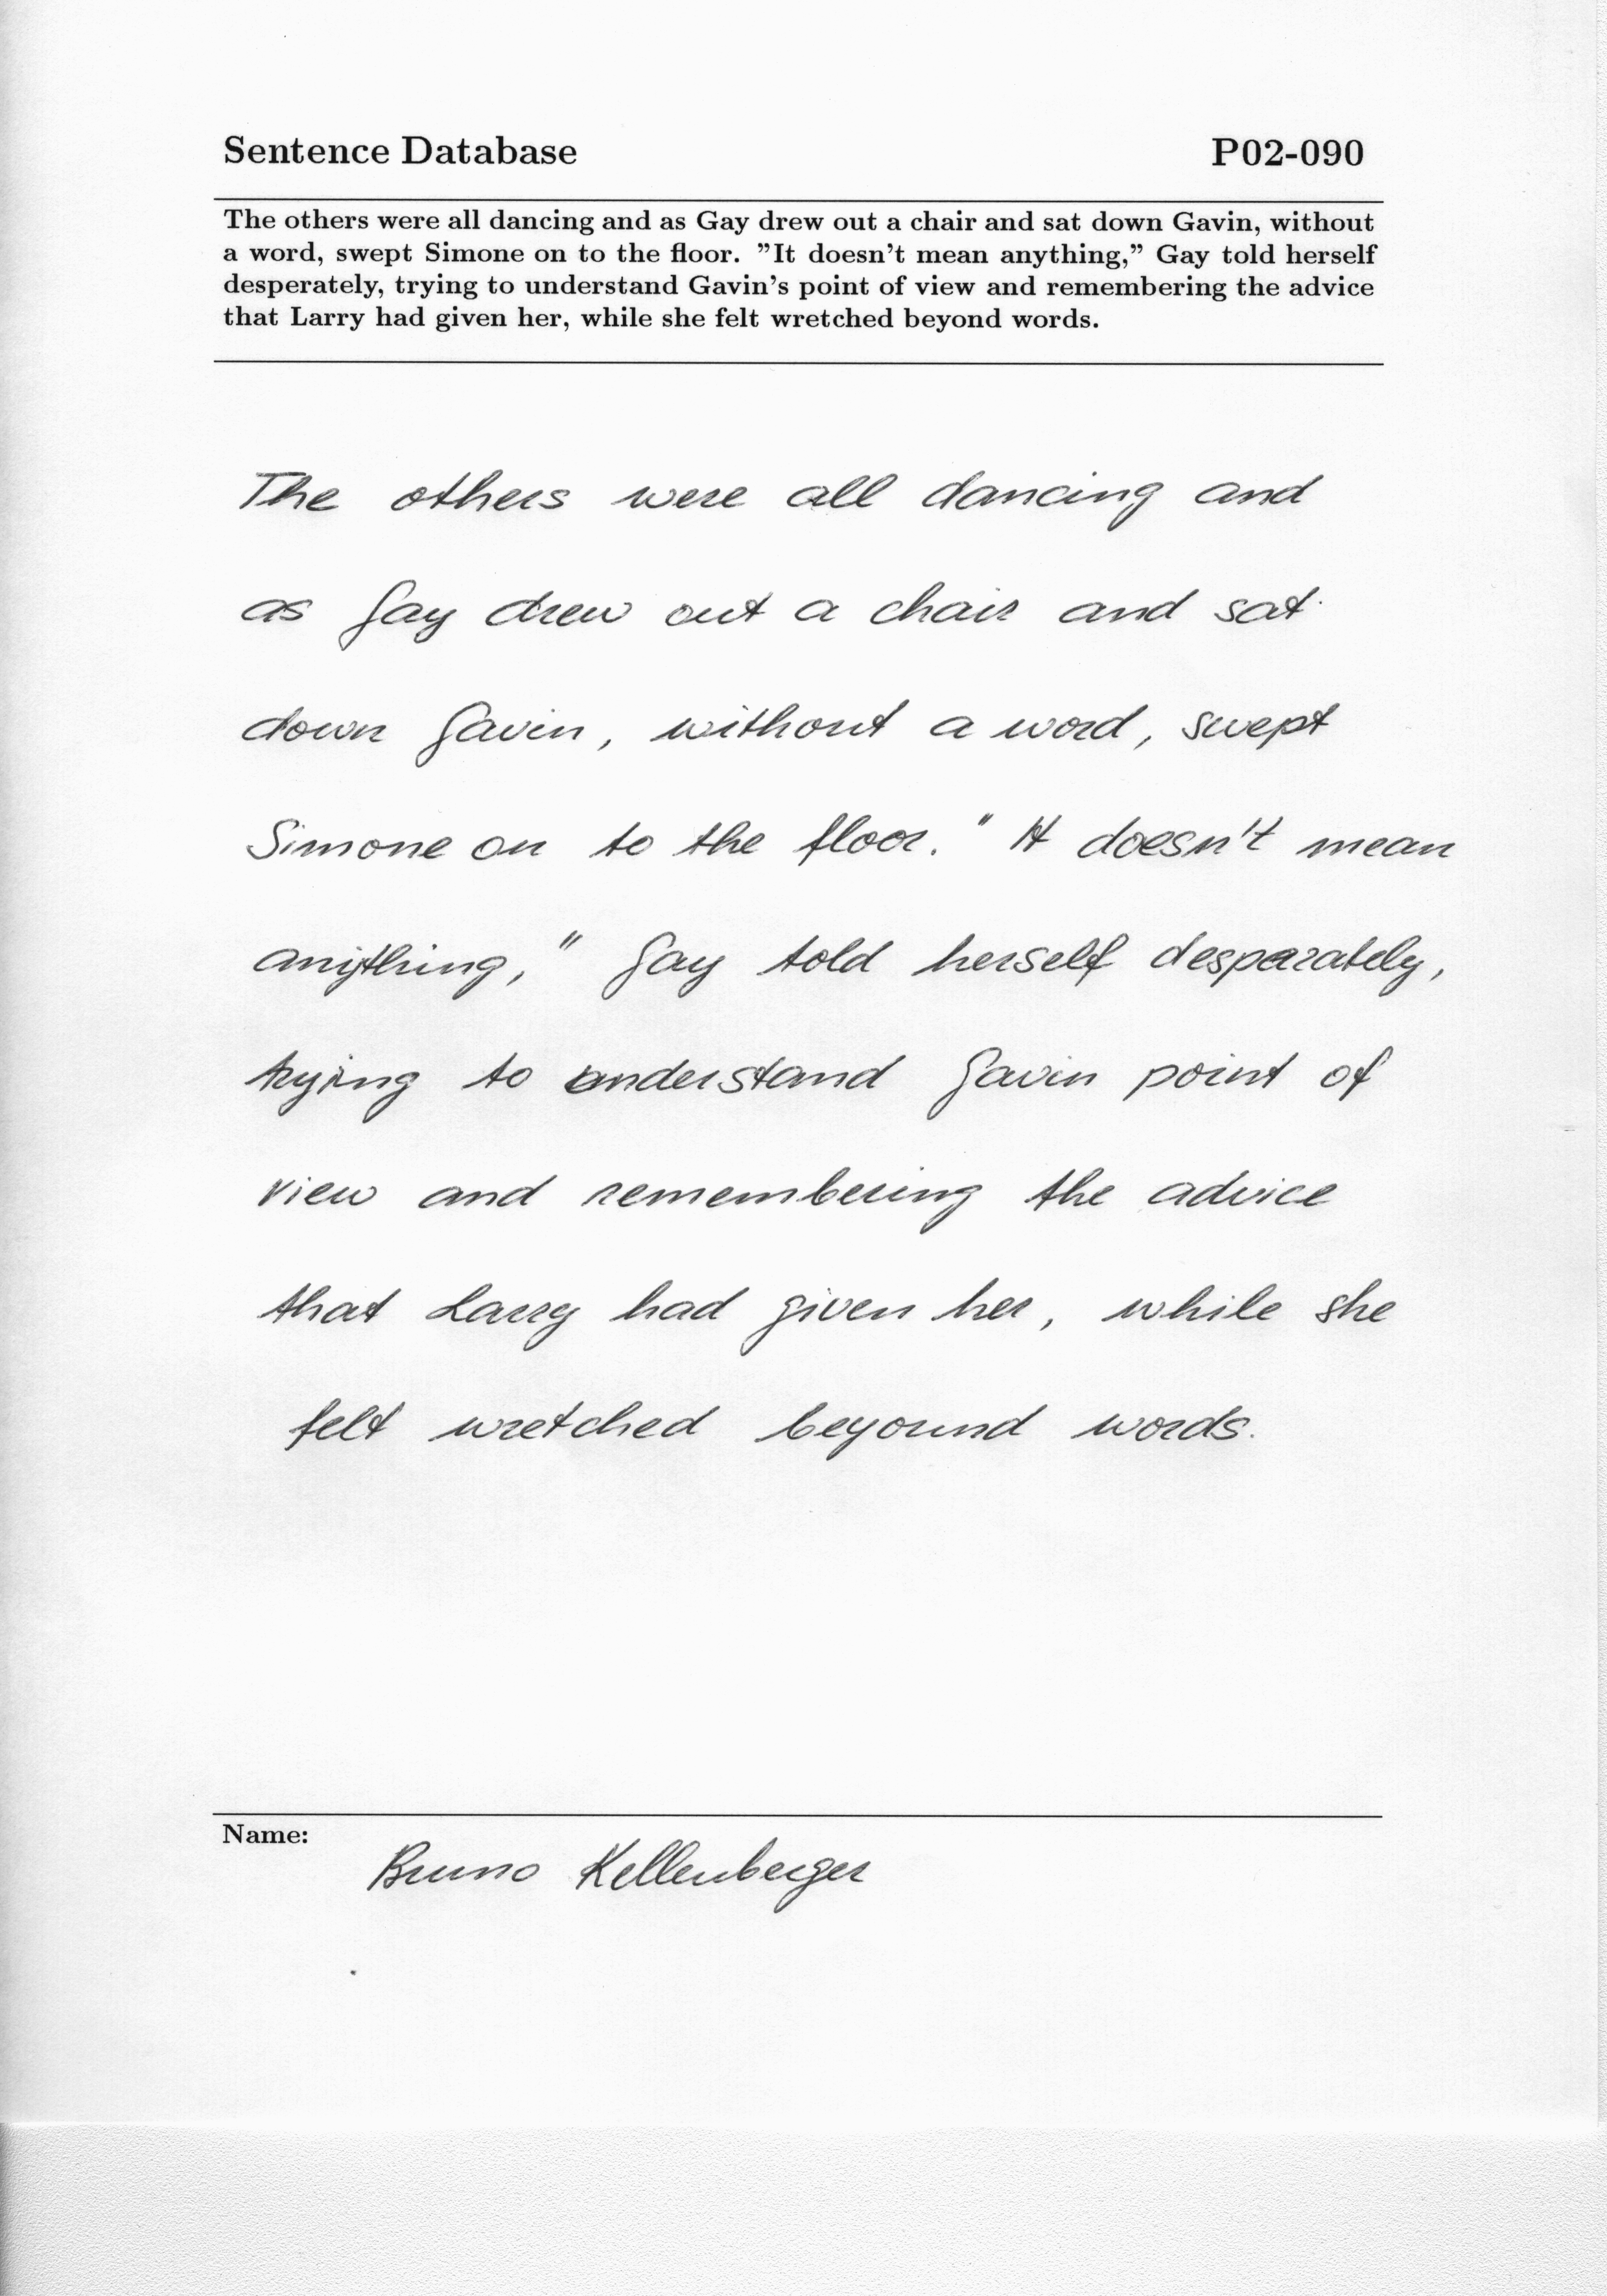 Sentence Database P02-090
The others were all dancing and as Gay drew out a chair and sat down Gavin, without
a word, swept Simone on to the floor. ”It doesn’t mean anything,” Gay told herself
desperately, trying to understand Gavin’s point of view and remembering the advice
that Larry had given her, while she felt wretched beyond words.
The others were all dancing and
as Gay drew out a chair and sat
down Gavin, without a word, swept
Simone on to the floor. " It doesn't mean
anything," Gay told herself desparately,
trying to understand Gavin point of
view and remembering the advice
that Larry had given her, while she
felt wretched beyound words.
Name:
Bruno Kellenberger